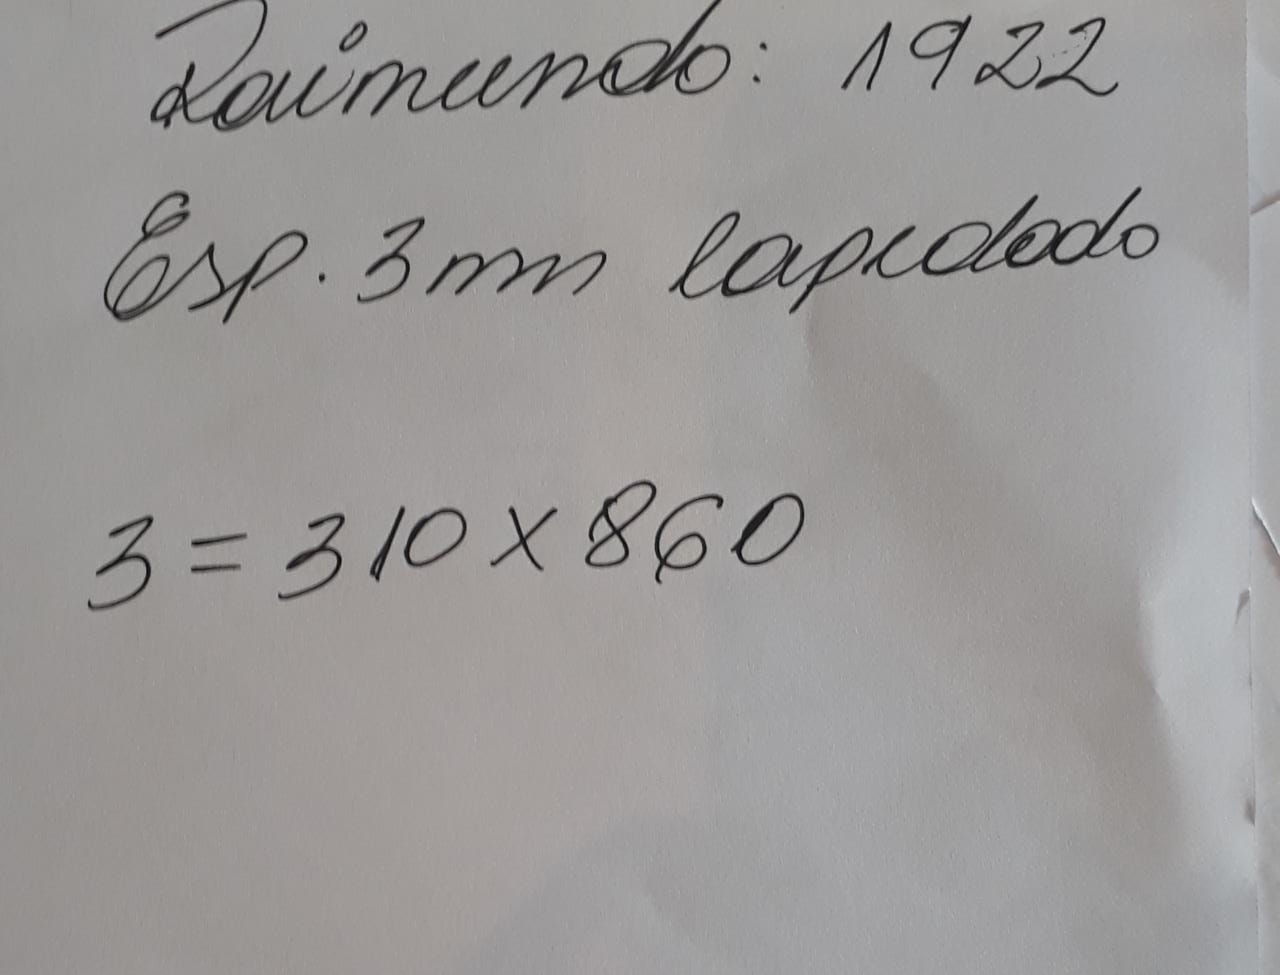 Raimundo: 1922
Esp. 3mm lapidado
3 = 310 x 860